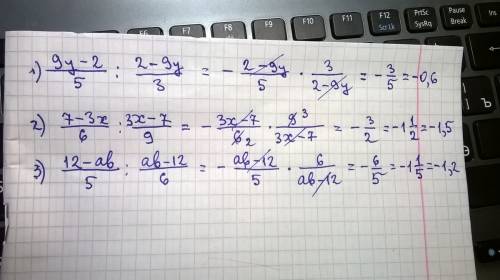 F10 F11 F12 Scr Lk PrtSc SysRq Pause Break
1) \frac{9y-2}{5} : \frac{2-9y}{3} = -\frac{2-9y}{5} · \frac{3}{2-9y} = -\frac{3}{5} = -0,6
2) \frac{7-3x}{6} : \frac{3x-7}{9} = -\frac{3x-7}{6 2} · \frac{9 3}{3x-7} = -\frac{3}{2} = -1\frac{1}{2} = -1,5
3) \frac{12-ab}{5} : \frac{ab-12}{6} = -\frac{ab-12}{5} · \frac{6}{ab-12} = -\frac{6}{5} = -1\frac{1}{5} = -1,2